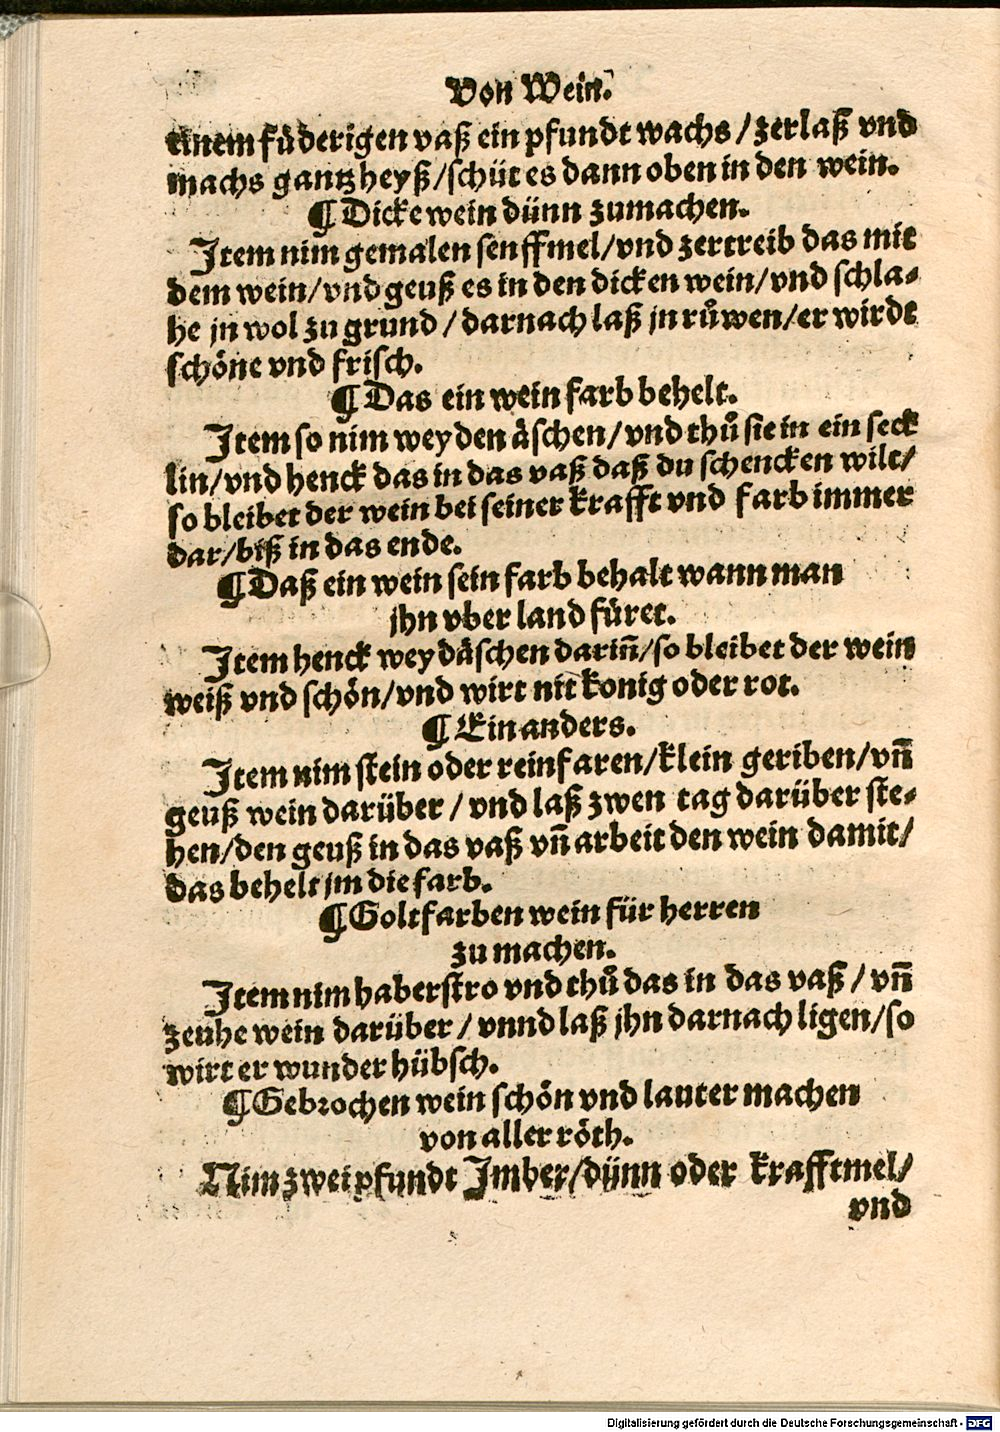 Von Wein.
einem fůderigen vaß ein pfundt wachs / zerlaß vnd
machs gantz heyß / schüt es dann oben in den wein.
¶ Dicke wein dünn zumachen.
Item nim gemalen senffmel / vnd zertreib das mit
dem wein / vnd geuß es in den dicken wein / vnd schla-
he jn wol zu grund / darnach laß jn růwen / er wirdt
schöne vnd frisch.
¶ Das ein wein farb behelt.
Item so nim weyden äschen / vnd thů sie in ein seck
lin / vnd henck das in das vaß daß du schencken wilt /
so bleibet der wein bei seiner krafft vnd farb immer
dar / biß in das ende.
¶ Daß ein wein sein farb behalt wann man
jhn vber land füret.
Item henck weydäschen dariñ / so bleibet der wein
weiß vnd schön / vnd wirt nit konig oder rot.
¶ Ein anders.
Item nim stein oder reinfaren / klein geriben / vñ
geuß wein darüber / vnd laß zwen tag darüber ste-
hen / den geuß in das vaß vñ arbeit den wein damit /
das behelt jm die farb.
¶ Goltfarben wein für herren
zu machen.
Item nim haberstro vnd thů das in das vaß / vñ
zeuhe wein darüber / vnnd laß jhn darnach ligen / so
wirt er wunder hübsch.
¶ Gebrochen wein schön vnd lauter machen
von aller röth.
Nim zwei pfundt Imber / dünn oder krafftmel /
vnd
Digitalisierung gefördert durch die Deutsche Forschungsgemeinschaft - DFG